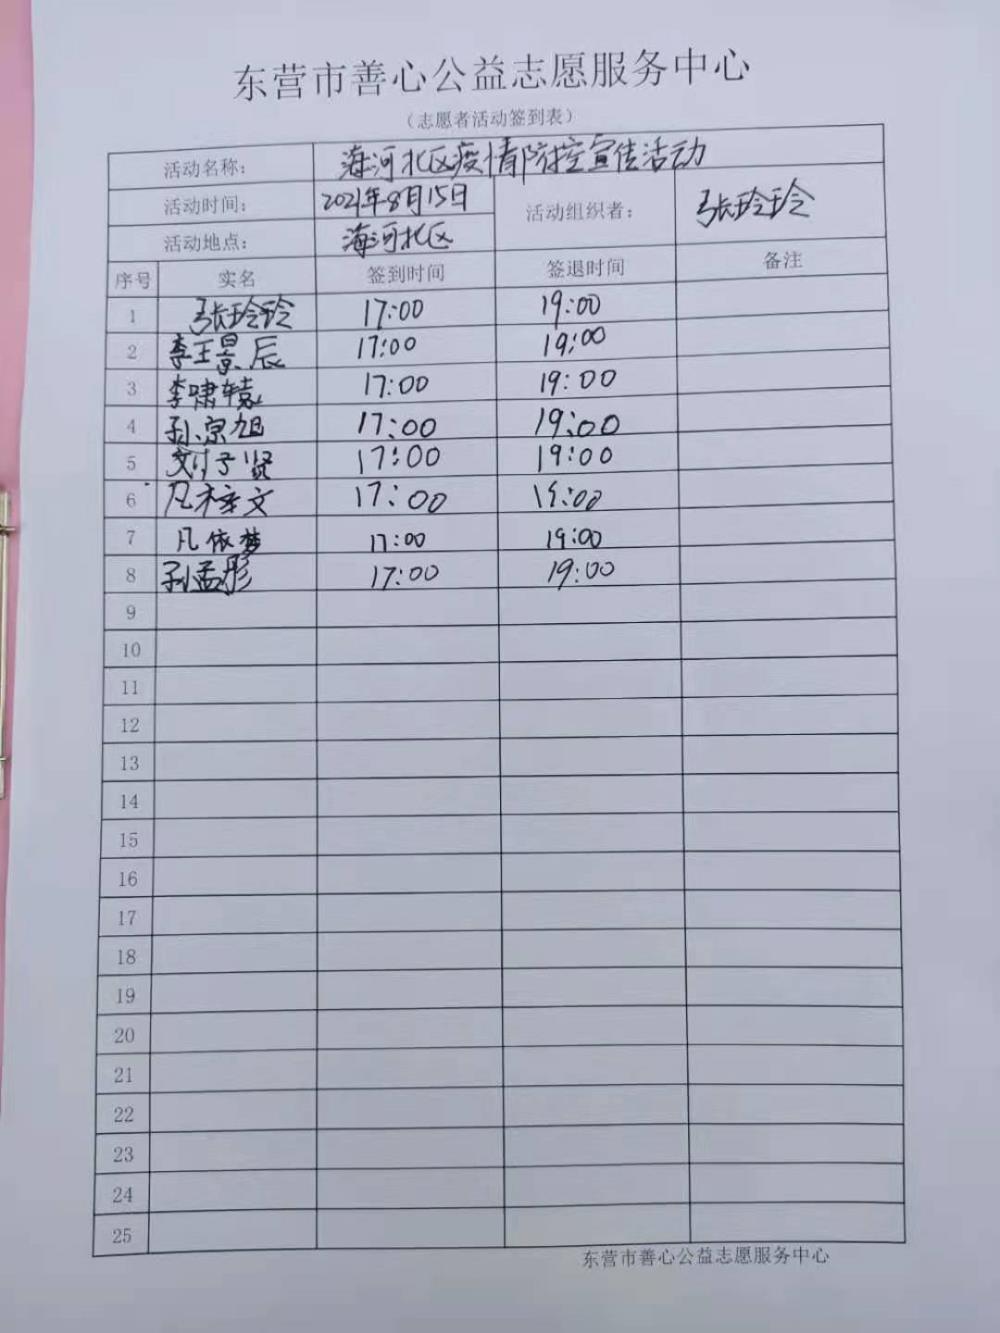 东营市善心公益志愿服务中心
（志愿者活动签到表）
活动名称： 海河北区疫情防控宣传活动
活动时间： 2021年8月15日 活动组织者： 张玲玲
活动地点： 海河北区
序号 实名 签到时间 签退时间 备注
1 张玲玲 17:00 19:00
2 李王景辰 17:00 19:00
3 李啸辕 17:00 19:00
4 孙宗旭 17:00 19:00
5 刘子贤 17:00 19:00
6 凡梓文 17:00 19:00
7 凡依梦 17:00 19:00
8 孙孟彤 17:00 19:00
9
10
11
12
13
14
15
16
17
18
19
20
21
22
23
24
25
东营市善心公益志愿服务中心